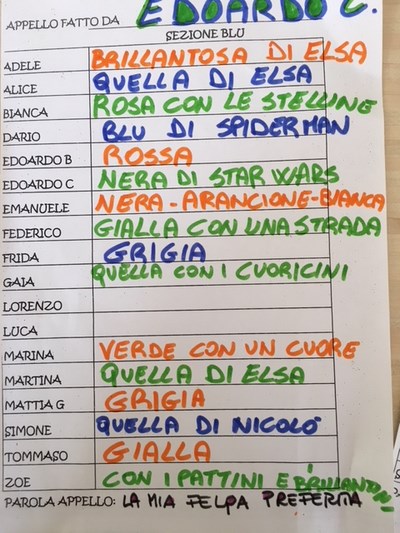 APPELLO FATTO DA EDOARDO C.
SEZIONE BLU
ADELE BRILLANTOSA DI ELSA
ALICE QUELLA DI ELSA
BIANCA ROSA CON LE STELLINE
DARIO BLU DI SPIDERMAN
EDOARDO B ROSSA
EDOARDO C NERA DI STAR WARS
EMANUELE NERA-ARANCIONE-BIANCA
FEDERICO GIALLA CON UNA STRADA
FRIDA GRIGIA
GAIA QUELLA CON I CUORICINI
LORENZO
LUCA
MARINA VERDE CON UN CUORE
MARTINA QUELLA DI ELSA
MATTIA G GRIGIA
SIMONE QUELLA DI NICOLÒ
TOMMASO GIALLA
ZOE CON I PATTINI E I BRILLANTONI
PAROLA APPELLO: LA MIA FELPA PREFERITA